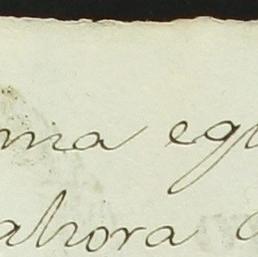 ma eg
ahora